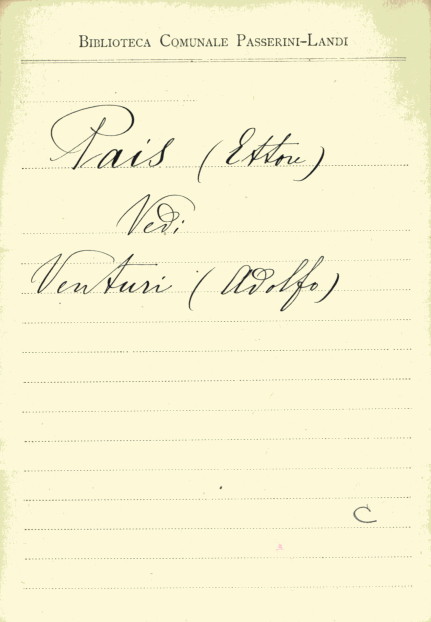 Biblioteca Comunale Passerini-Landi
Pais (Ettore)
Vedi
Venturi (Adolfo)
C